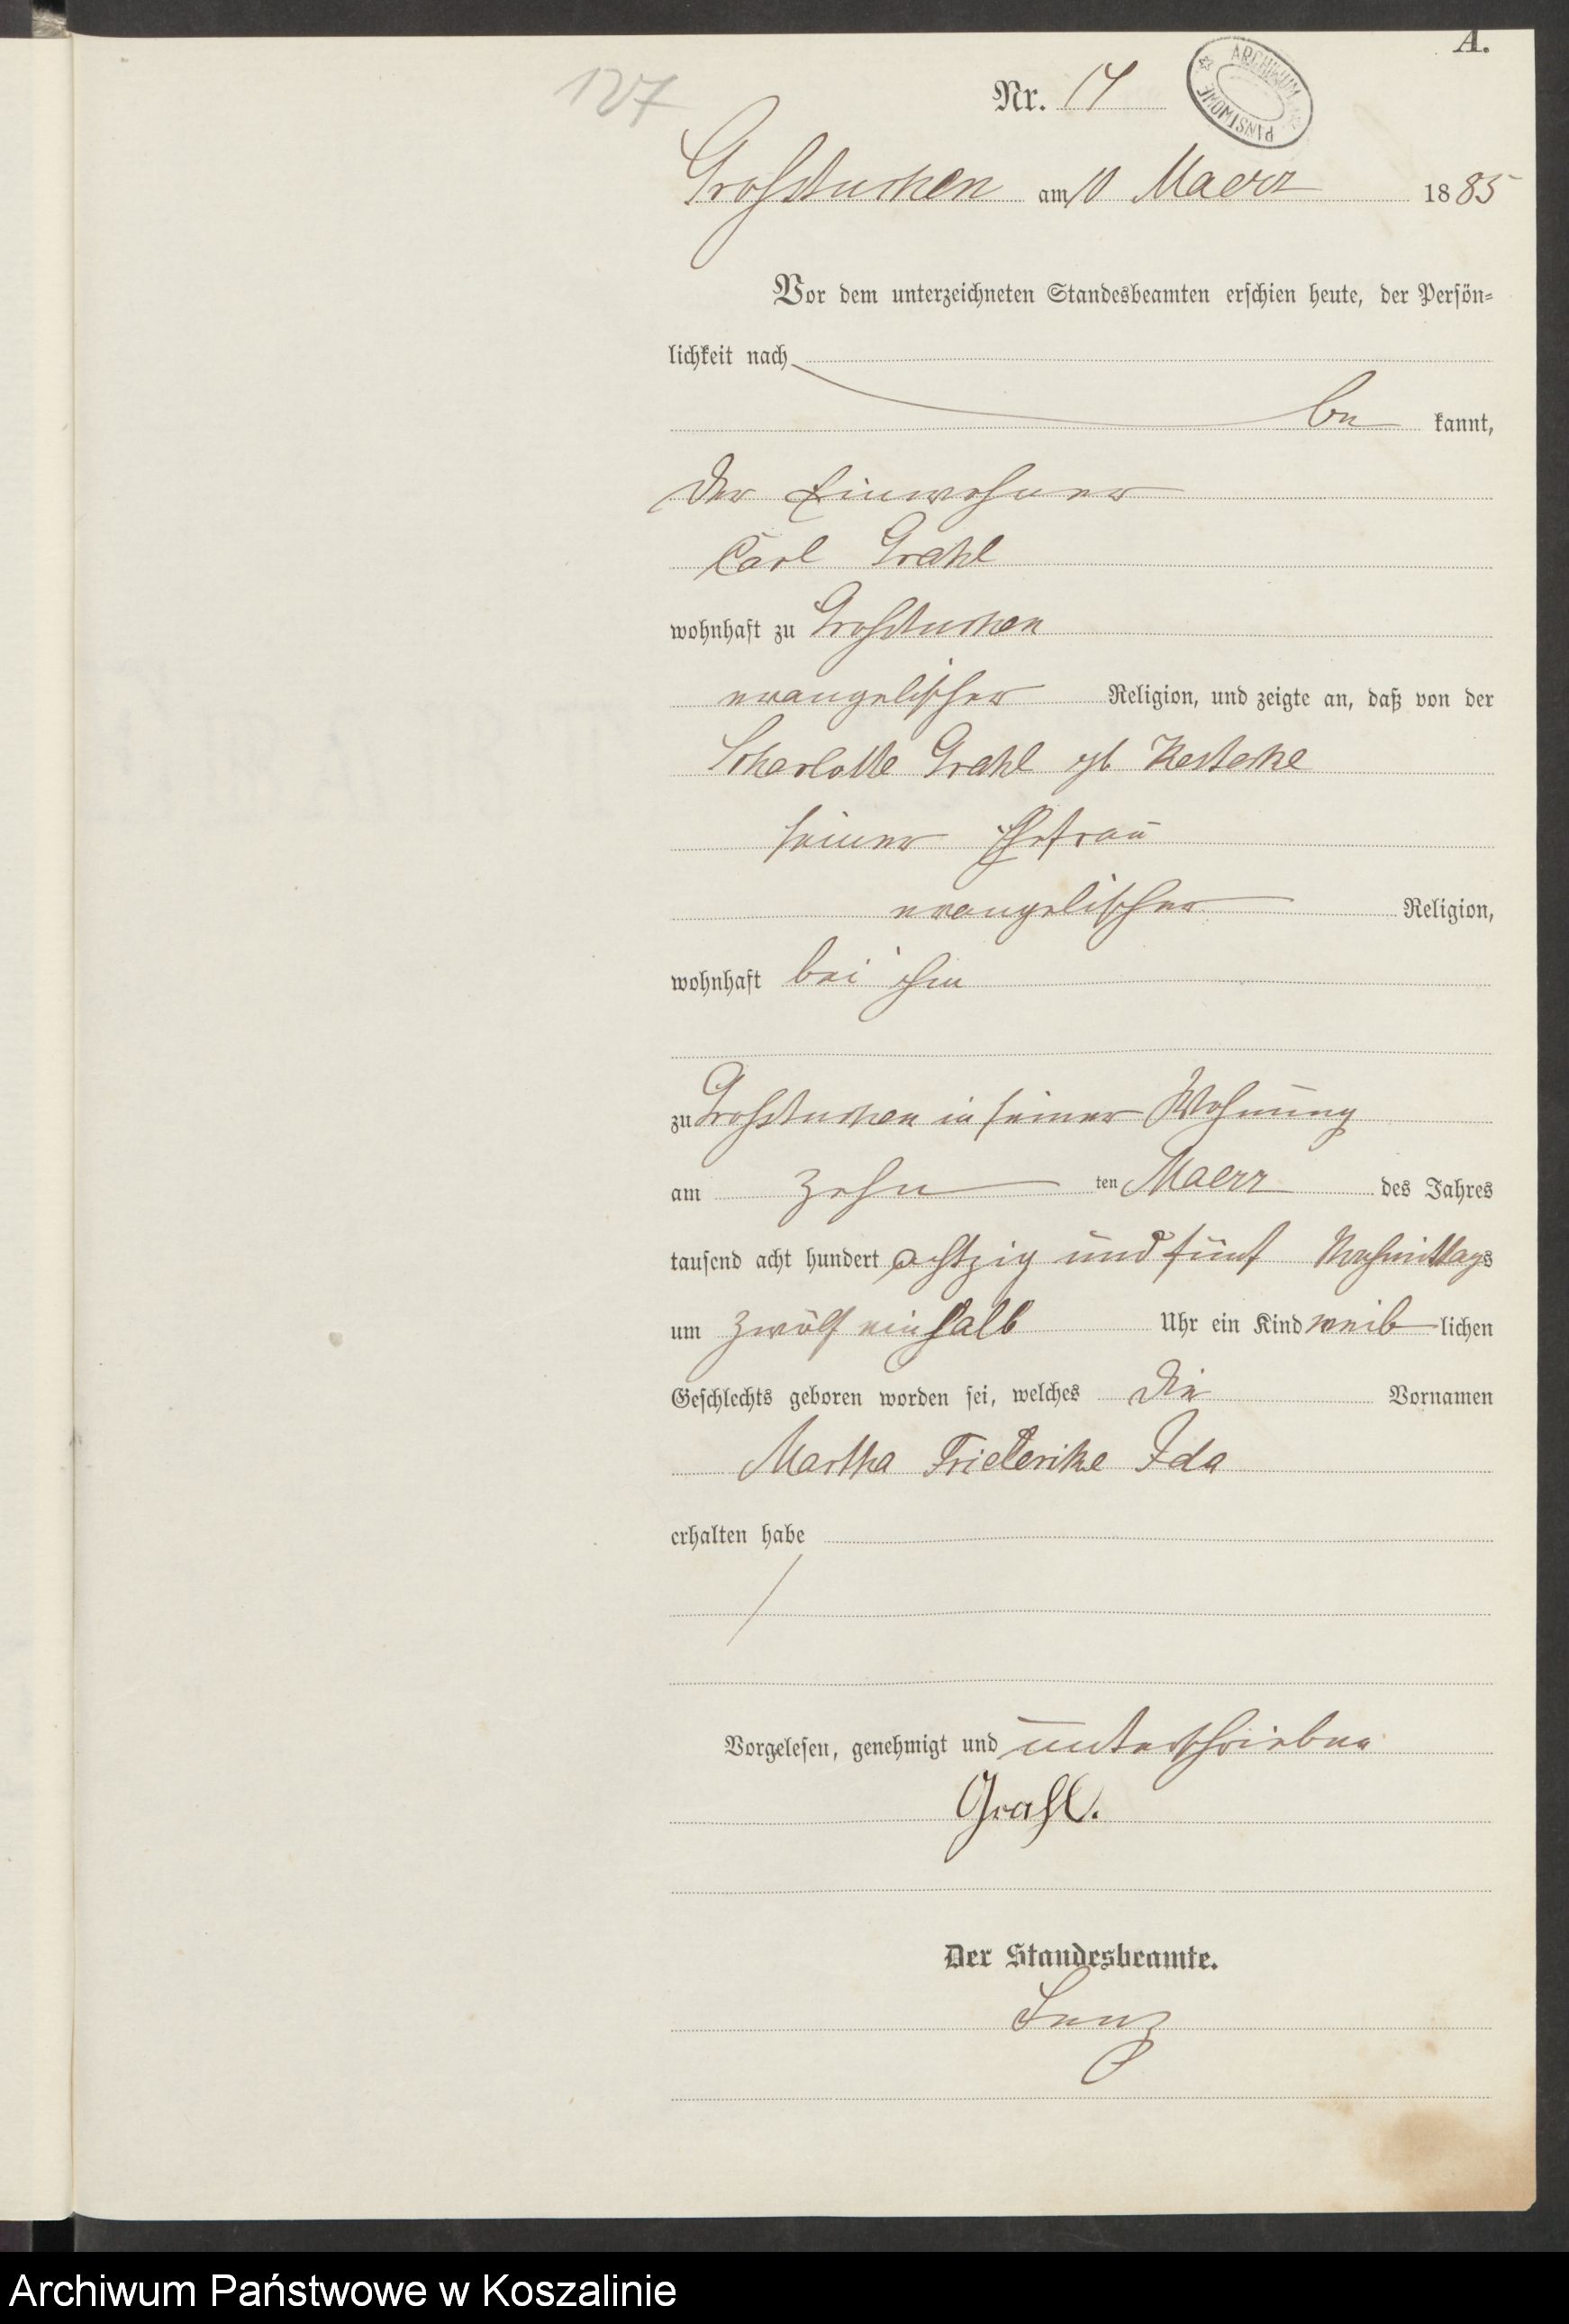 A.
127
Nr. 17
ARCHIWUM PAŃSTWOWE
Grosstuchen am 10 Maerz 1885
Vor dem unterzeichneten Standesbeamten erschien heute, der Persön-
lichkeit nach
be kannt,
der Einwohner
Carl Grahl
wohnhaft zu Grosstuchen
evangelischer Religion, und zeigte an, daß von der
Charlotte Grahl geb
seiner Ehefrau
evangelischer Religion,
wohnhaft bei ihm
zu Grosstuchen in seiner Wohnung
am zehn ten Maerz des Jahres
tausend acht hundert achtzig und fünf Nachmittags
um zwölf ein halb Uhr ein Kind weib lichen
Geschlechts geboren worden sei, welches die Vornamen
Martha Friederike Ida
erhalten habe
Vorgelesen, genehmigt und unterschrieben
Grahl.
Der Standesbeamte.
Lenz
Archiwum Państwowe w Koszalinie